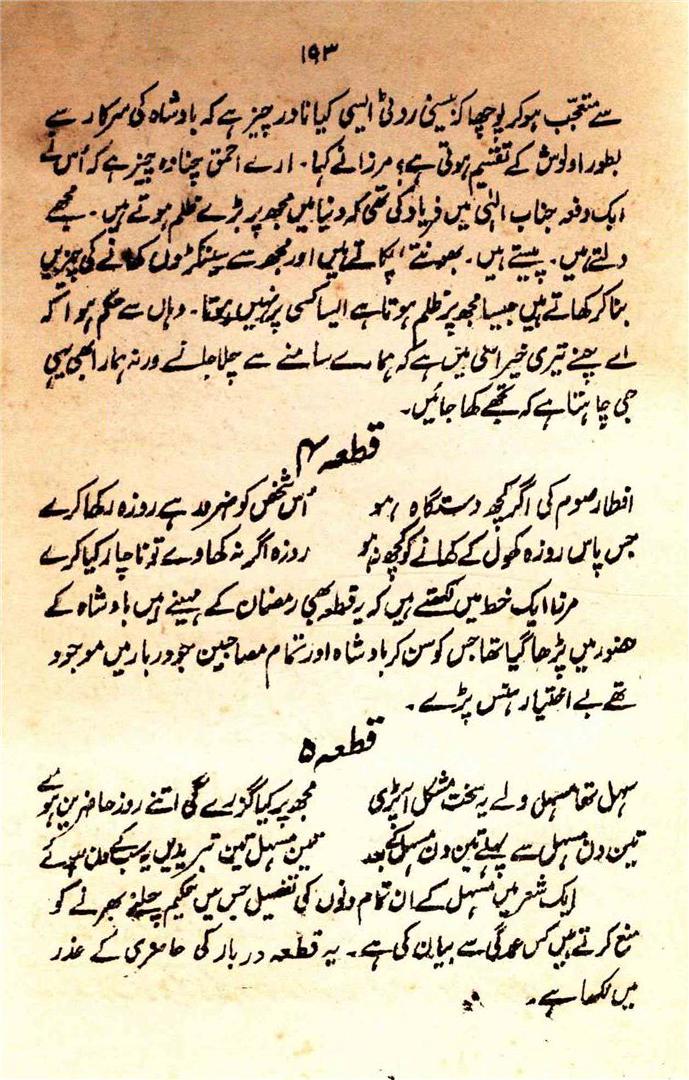 ۱۹۳
سے متعجّب ہوکر پوچھا کہ بیسنی روٹی ایسی کیا نادر چیز ہے کہ بادشاہ کی سرکار سے
بطور اولوش کے تقسیم ہوتی ہے؟ مرزا نے کہا۔ ارے احمق چنا وہ چیز ہے کہ اُس نے
ایک دفعہ جناب الٰہی میں فریاد کی تھی کہ دنیا میں مجھ پر بڑے ظلم ہوتے ہیں۔ مجھے
دلتے ہیں۔ پیستے ہیں۔ بھونتے ہیں پکاتے ہیں اور مجھ سے سینکڑوں کھانے کی چیزیں
بنا کر کھاتے ہیں جیسا مجھ پر ظلم ہوتا ہے ایسا کسی پر نہیں ہوتا۔ وہاں سے حکم ہوا کہ
اے چنے تیری خیر اسی میں ہے کہ ہمارے سامنے سے چلا جائے ورنہ ہمارا بھی یہی
جی چاہتا ہے کہ تجھے کھا جائیں۔
قطعہ ۴
افطار صوم کی اگر کچھ دستگاہ ہو اُس شخص کو ضرور ہے روزہ رکھا کرے
جس پاس روزہ کھول کے کھانے کو کچھ نہ ہو روزہ اگر نہ کھاوے تو ناچار کیا کرے
مرزا ایک خط میں لکھتے ہیں کہ یہ قطعہ بھی رمضان کے مہینے میں بادشاہ کے
حضور میں پڑھا گیا تھا جس کو سن کر بادشاہ اور تمام مصاحبین جو دربار میں موجود
تھے بے اختیار ہنس پڑے۔
قطعہ ۵
سہل تھا مسہل ولے یہ سخت مشکل آپڑی مجھ پر کیا گزرے گی اتنے روز حاضر بن ہوئے
تین دن مسہل سے پہلے تین دن مسہل کے بعد تین مسہل تین تبریدیں یہ سب کے دن ہوئے
ایک شعر میں مسہل کے ان تمام دنوں کی تفصیل جس میں حکیم چلنے پھرنے کو
منع کرتے ہیں کس عمدگی سے بیان کی ہے۔ یہ قطعہ دربار کی حاضری کے عذر
میں لکھا ہے۔